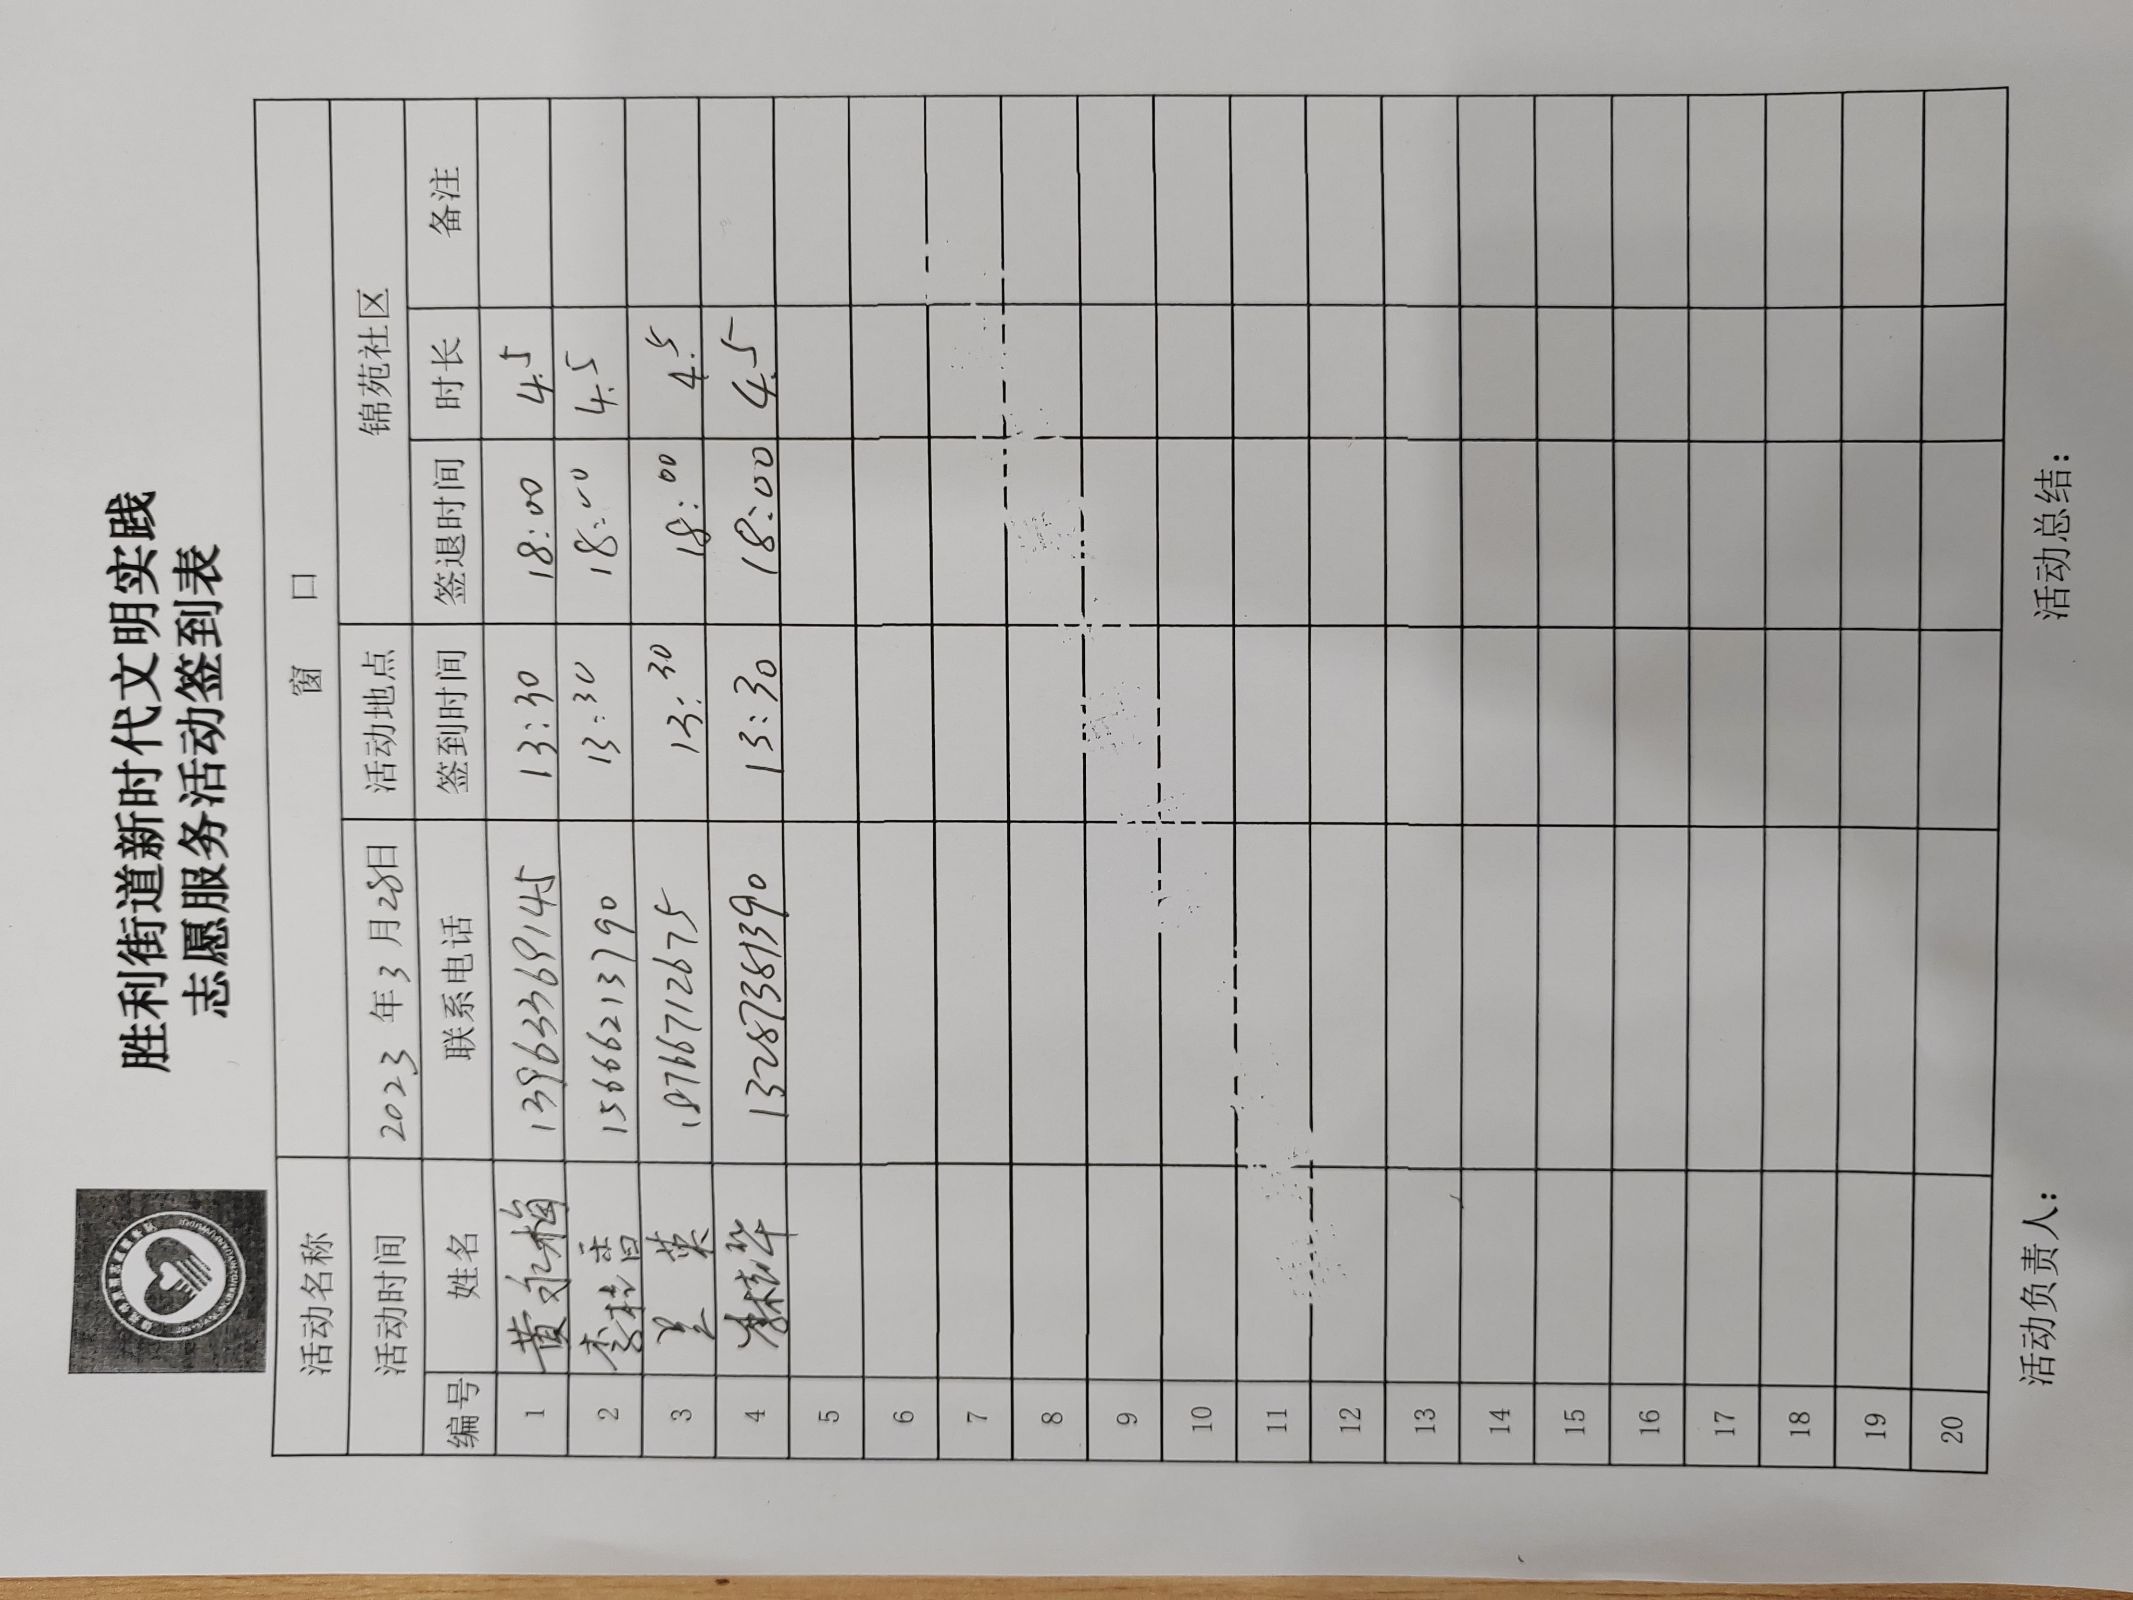 胜利街道新时代文明实践
志愿服务活动签到表
活动名称 窗 口
活动时间 2023 年 3 月 28 日 活动地点 锦苑社区
编号 姓名 联系电话 签到时间 签退时间 时长 备注
1 黄永梅 13963369145 13:30 18:00 4.5
2 李桂香 15666213790 13:30 18:00 4.5
3 英 18766712675 13:30 18:00 4.5
4 李桂华 13287381390 13:30 18:00 4.5
5
6
7
8
9
10
11
12
13
14
15
16
17
18
19
20
活动负责人： 活动总结：